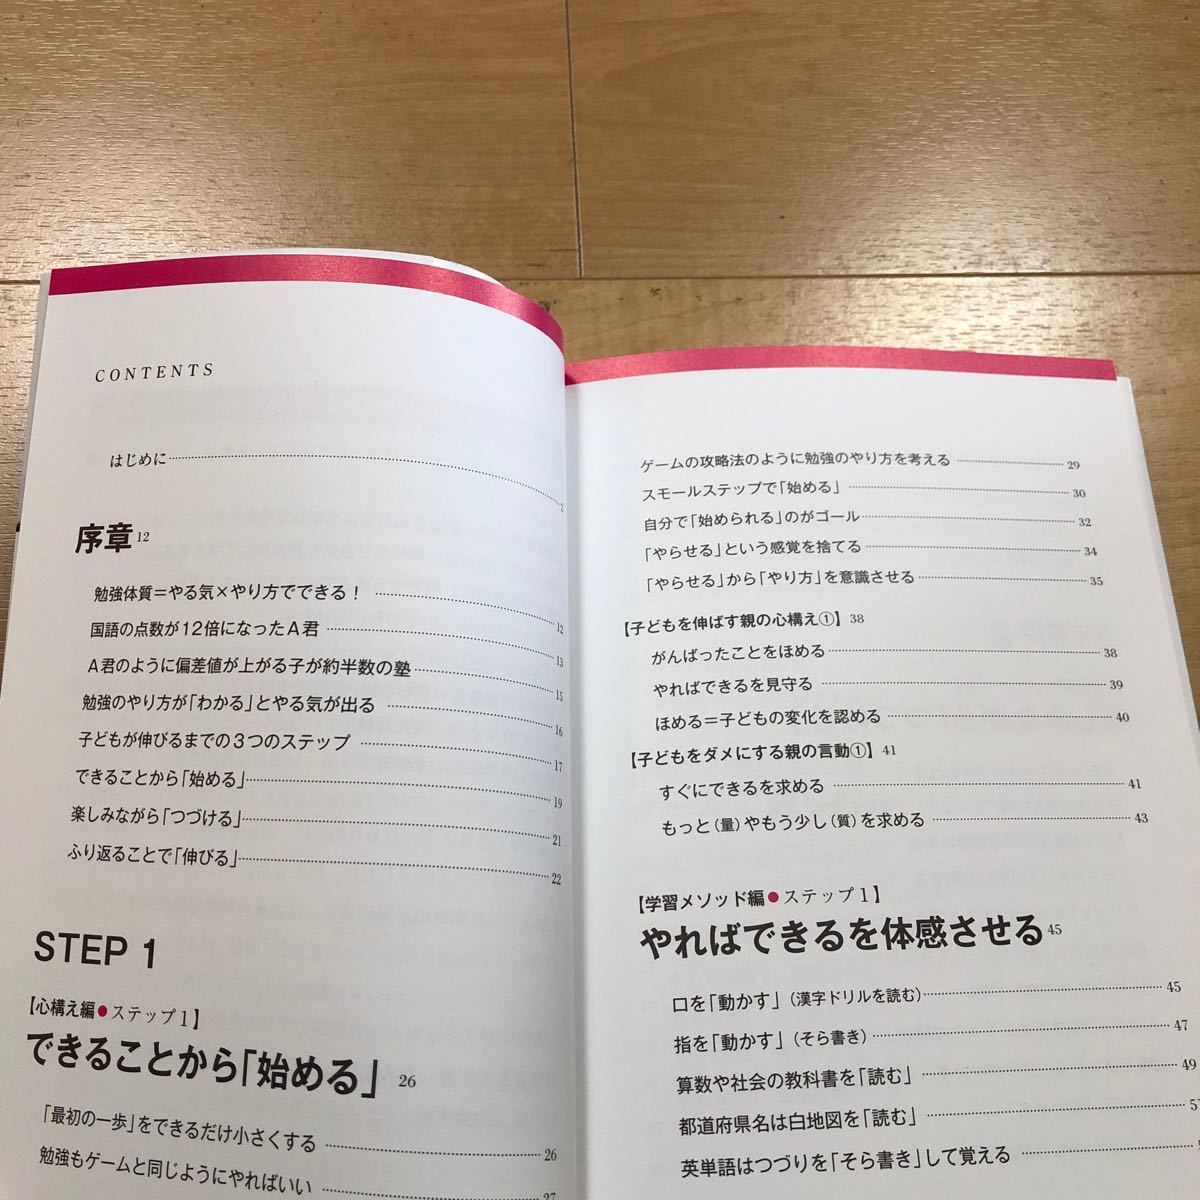 CONTENTS
はじめに 2
序章 12
勉強体質＝やる気×やり方でできる！ 12
国語の点数が12倍になったA君 13
A君のように偏差値が上がる子が約半数の塾 15
勉強のやり方が「わかる」とやる気が出る 16
子どもが伸びるまでの3つのステップ 17
できることから「始める」 19
楽しみながら「つづける」 21
ふり返ることで「伸びる」 22
STEP 1
【心構え編●ステップ1】
できることから「始める」 26
「最初の一歩」をできるだけ小さくする 26
勉強もゲームと同じようにやればいい 27
ゲームの攻略法のように勉強のやり方を考える 29
スモールステップで「始める」 30
自分で「始められる」のがゴール 32
「やらせる」という感覚を捨てる 34
「やらせる」から「やり方」を意識させる 35
【子どもを伸ばす親の心構え①】 38
がんばったことをほめる 38
やればできるを見守る 39
ほめる＝子どもの変化を認める 40
【子どもをダメにする親の言動①】 41
すぐにできるを求める 41
もっと（量）やもう少し（質）を求める 43
【学習メソッド編●ステップ1】
やればできるを体感させる 45
口を「動かす」（漢字ドリルを読む） 45
指を「動かす」（そら書き） 47
算数や社会の教科書を「読む」 49
都道府県名は白地図を「読む」 51
英単語はつづりを「そら書き」して覚える